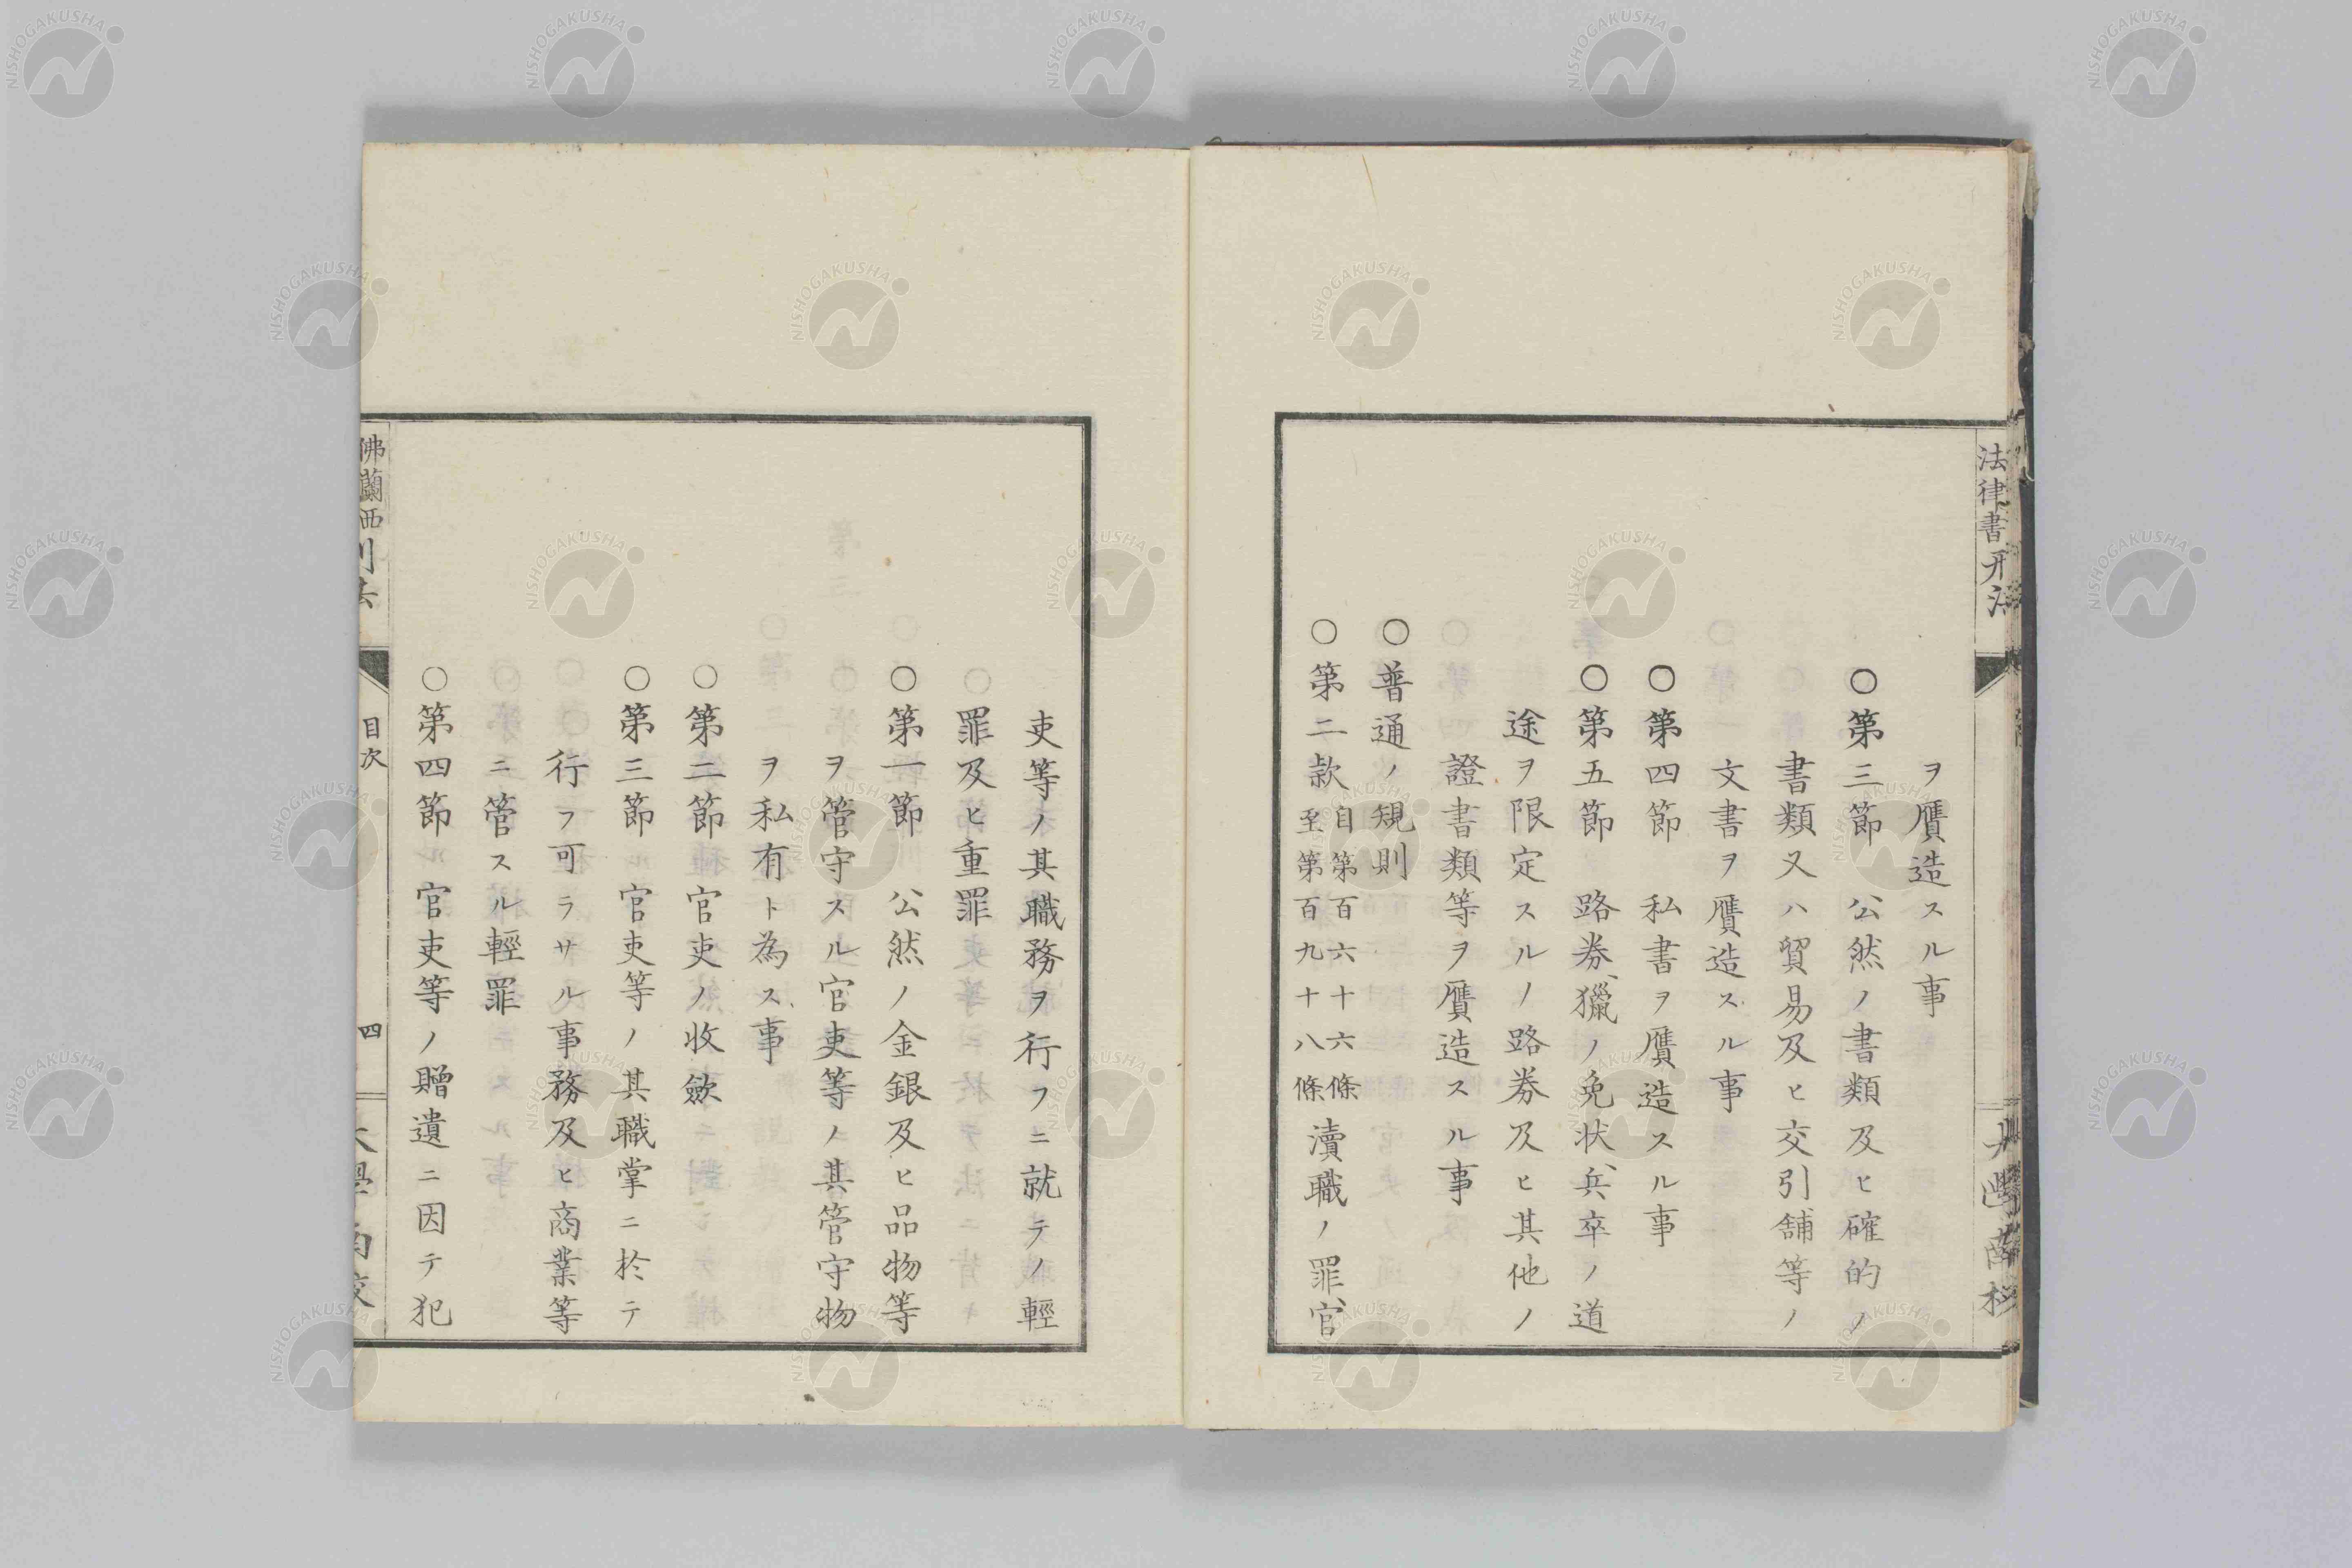 法律書刑法
ヲ贋造スル事
○第三節 公然ノ書類及ヒ確的ノ
書類又ハ貿易及ヒ交引舗等ノ
文書ヲ贋造スル事
○第四節 私書ヲ贋造スル事
○第五節 路券、獵ノ免状、兵卒ノ道
途ヲ限定スルノ路券及ヒ其他ノ
證書類等ヲ贋造スル事
○普通ノ規則
○第二款 自第百六十六條
至第百九十八條 瀆職ノ罪、官
吏等ノ其職務ヲ行フニ就テノ輕
罪及ヒ重罪
○第一節 公然ノ金銀及ヒ品物等
ヲ管守スル官吏等ノ其管守物
ヲ私有ト為ス事
○第二節 官吏ノ收歛
○第三節 官吏等ノ其職掌ニ於テ
行フ可ラサル事務及ヒ商業等
ニ管スル輕罪
○第四節 官吏等ノ贈遺ニ因テ犯
佛蘭西刑法
目次
四
大學南校